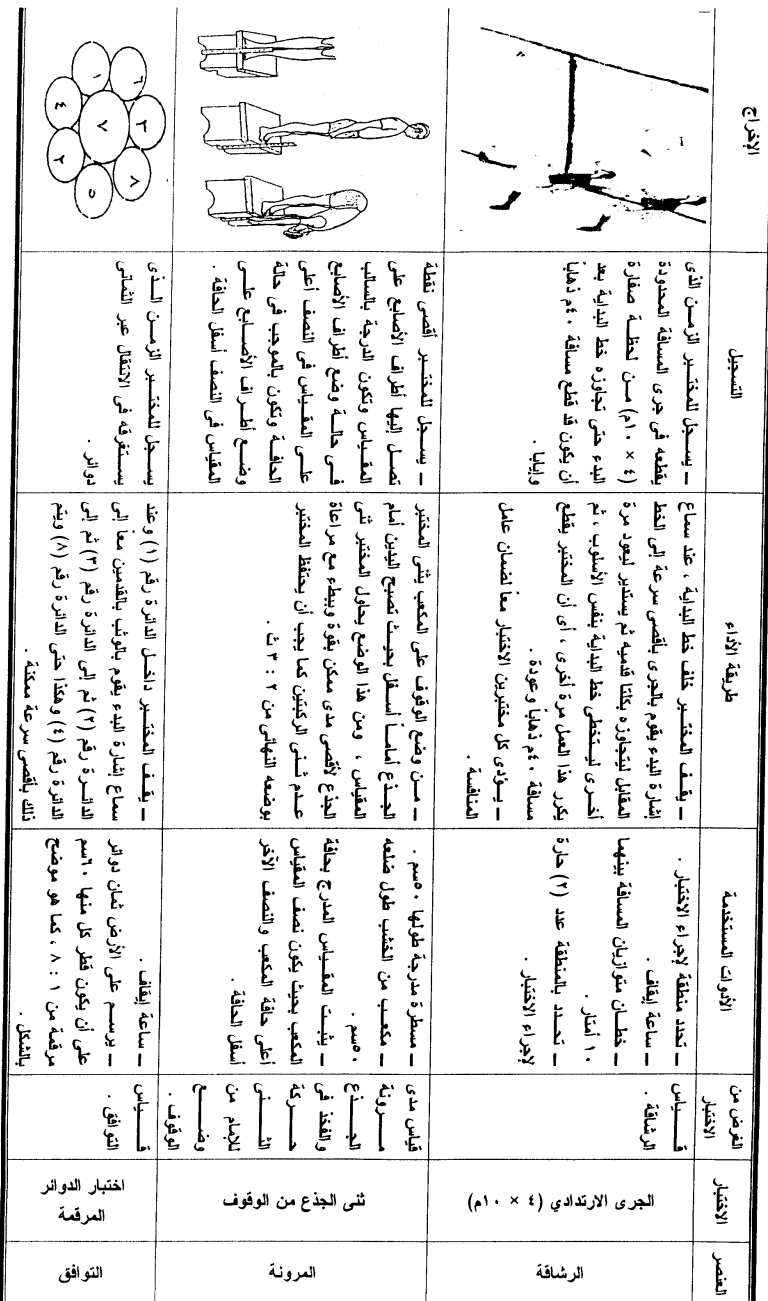 العنصر
الاختبار
الغرض من
الاختبار
الأدوات المستخدمة
طريقة الأداء
التسجيل
الإخراج
الرشاقة
الجرى الارتدادي (٤ × ١٠م)
قـــيـــاس
الرشاقة .
ــ تحدد منطقة لإجراء الاختبار .
ــ ساعة إيقاف .
ــ خطــان متوازيان المسافة بينهما
١٠ أمتار .
ــ تحـدد بالمنطقة عدد (٢) حارة
لإجراء الاختبار .
ــ يقـف المختـبر خلف خط البداية ، عند سماع
إشارة البدء يقوم بالجرى بأقصى سرعة إلى الخط
المقابل ليتجاوزه بكلتا قدميه ثم يستدير ليعود مرة
أخـرى ليـتخطى خط البداية بنفس الأسلوب ، ثم
يكرر هذا العمل مرة أخرى ، أى أن المختبر يقطع
مسافة ٤٠م ذهاباً وعودة .
ــ يـؤدى كل مختبرين الاختبار معاً لضمان عامل
المنافسة .
ــ يسـجل للمختـبر الزمـن الذى
يقطعه فى جرى المسافة المحدودة
(٤ × ١٠م) مـن لحظـة صفارة
البدء حتى تجاوزه خط البداية بعد
أن يكون قد قطع مسافة ٤٠م ذهاباً
وإيابا .
المرونة
ثنى الجذع من الوقوف
قياس مدى
مـــرونة
الجـــذع
والفخذ فى
حـــركة
الثـــنى
للأمام من
وضـــع
الوقوف .
ــ مسطرة مدرجة طولها ٥٠سم .
ــ مكعـب من الخشب طول ضلعه
٥٠سم .
ــ يثبـت المقـياس المدرج بحافة
المكعب بحيث يكون نصف المقياس
أعلى حافة المكعب والنصف الآخر
أسفل الحافة .
ــ مـن وضع الوقوف على المكعب يثنى المختبر
الجـذع أمامـاً أسـفل بحيـث تصبح اليدين أمام
المقياس ، ومن هذا الوضع يحاول المختبر ثنى
الجذع لأقصى مدى ممكن بقوة وببطء مع مراعاة
عـدم ثـنى الركبتين كما يجب أن يحتفظ المختبر
بوضعه النهائى من ٢ : ٣ ث .
ــ يسـجل للمختـبر أقصى نقطة
تصـل إليها أطراف الأصابع على
المقـياس وتكون الدرجة بالسالب
فـى حالـة وضع أطراف الأصابع
علـى المقـياس فى النصف أعلى
الحافـة وتكون بالموجب فى حالة
وضـع أطـراف الأصـابع علـى
المقياس فى النصف أسفل الحافة .
التوافق
اختبار الدوائر
المرقمة
قـــيـــاس
التوافق .
ــ ساعة إيقاف .
ــ يرسـم على الأرض ثمان دوائر
على أن يكون قطر كل منها ٦٠سم
مرقمة من ١ : ٨ ، كما هو موضح
بالشكل .
ــ يقـف المختبر داخـل الدائرة رقم (١) وعند
سماع إشارة البدء يقوم بالوثب بالقدمين معاً إلى
الدائـرة رقم (٢) ثم إلى الدائرة رقم (٣) ثم إلى
الدائرة رقم (٤) وهكذا حتى الدائرة رقم (٨) ويتم
ذلك بأقصى سرعة ممكنة .
يسـجل للمختـبر الزمـن الـذى
يسـتغرقه فى الانتقال عبر الثمانى
دوائر .
٦
١
٣
٧
٤
٨
٢
٥